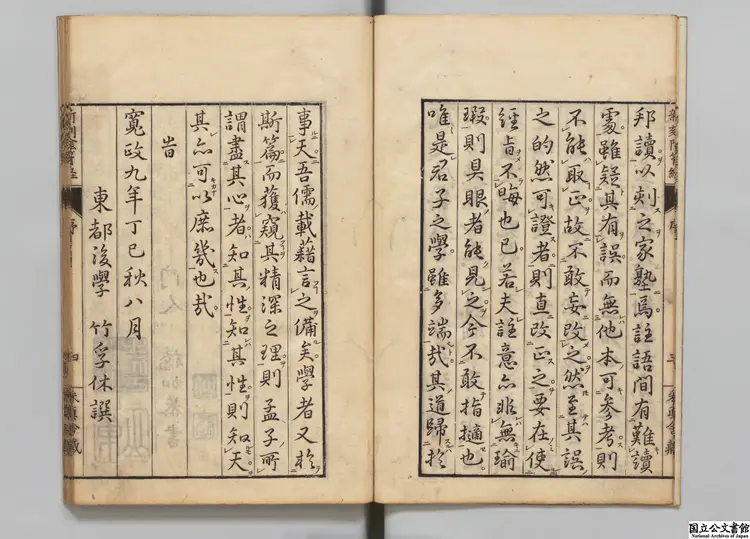 邦讀以刻之家塾焉註語間有難讀
處雖疑其有誤而無他本可參考則
不能取正故不敢妄改之然至其誤
之的然可證者則直改正之要在使
經旨不晦也已若夫註意亦非無瑜
瑕則具眼者能見之今不敢指擿也
唯是君子之學雖多端哉其道歸於
事天吾儒載藉言之備矣學者又於
斯篇而獲窺其精深之理則孟子所
謂盡其心者知其性知其性則知天
其亦可以庶幾也哉
旹
寬政九年丁巳秋八月
東都後學 竹孚休譔
国立公文書館
National Archives of Japan